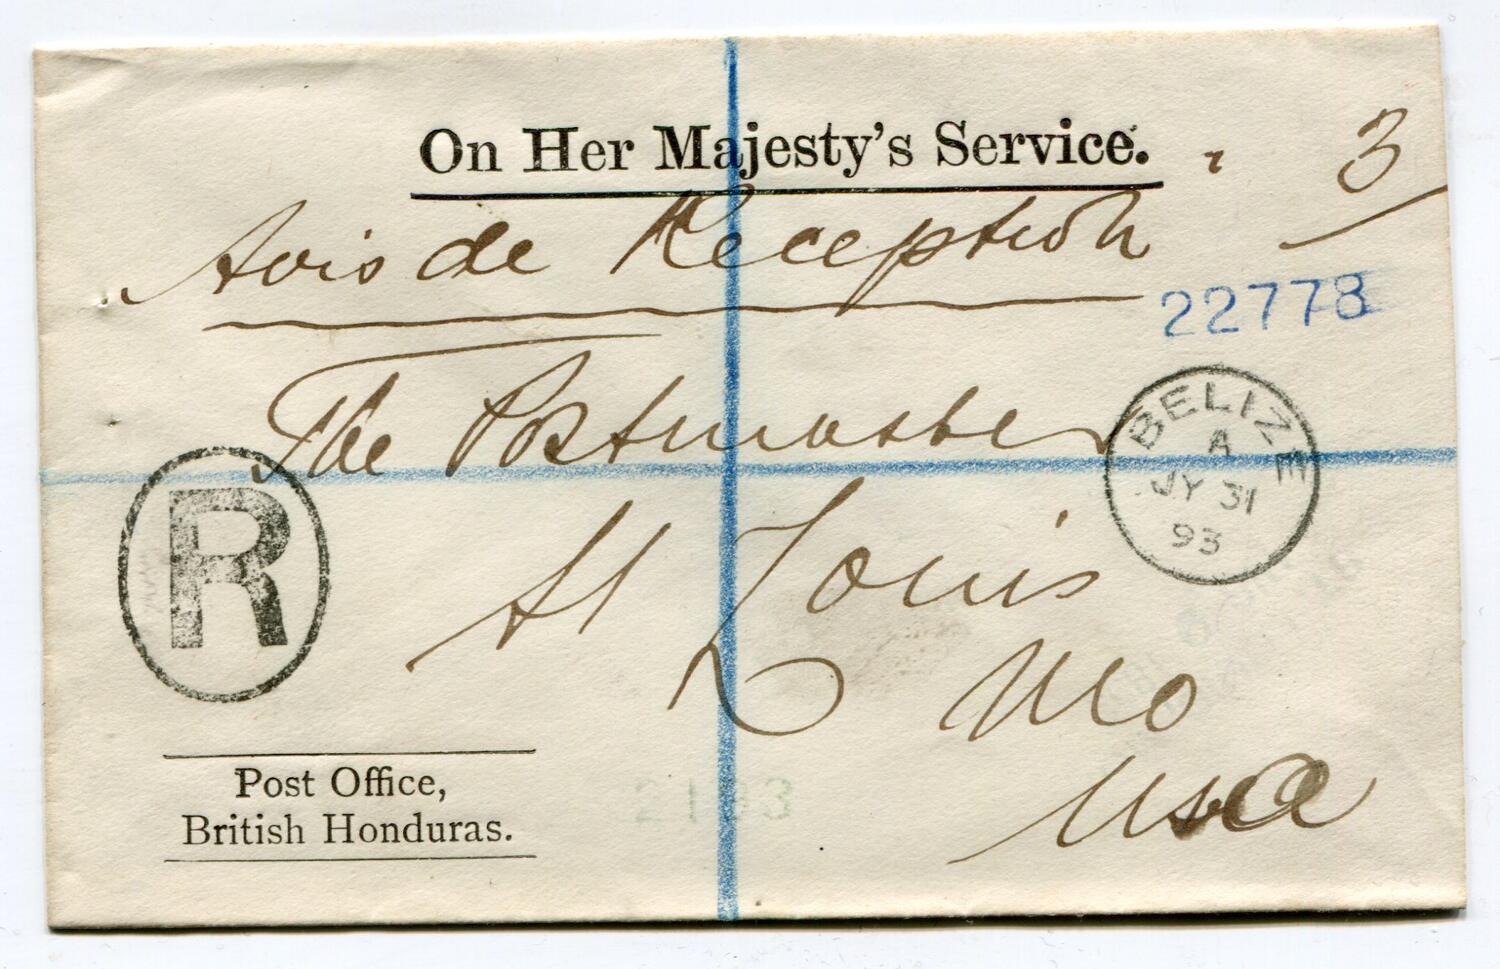 On Her Majesty's Service.
3
Avis de Reception
22778
The Postmaster
BELIZE
A
JY 31
93
R
St Louis
Mo
Usa
Post Office,
British Honduras.
2193